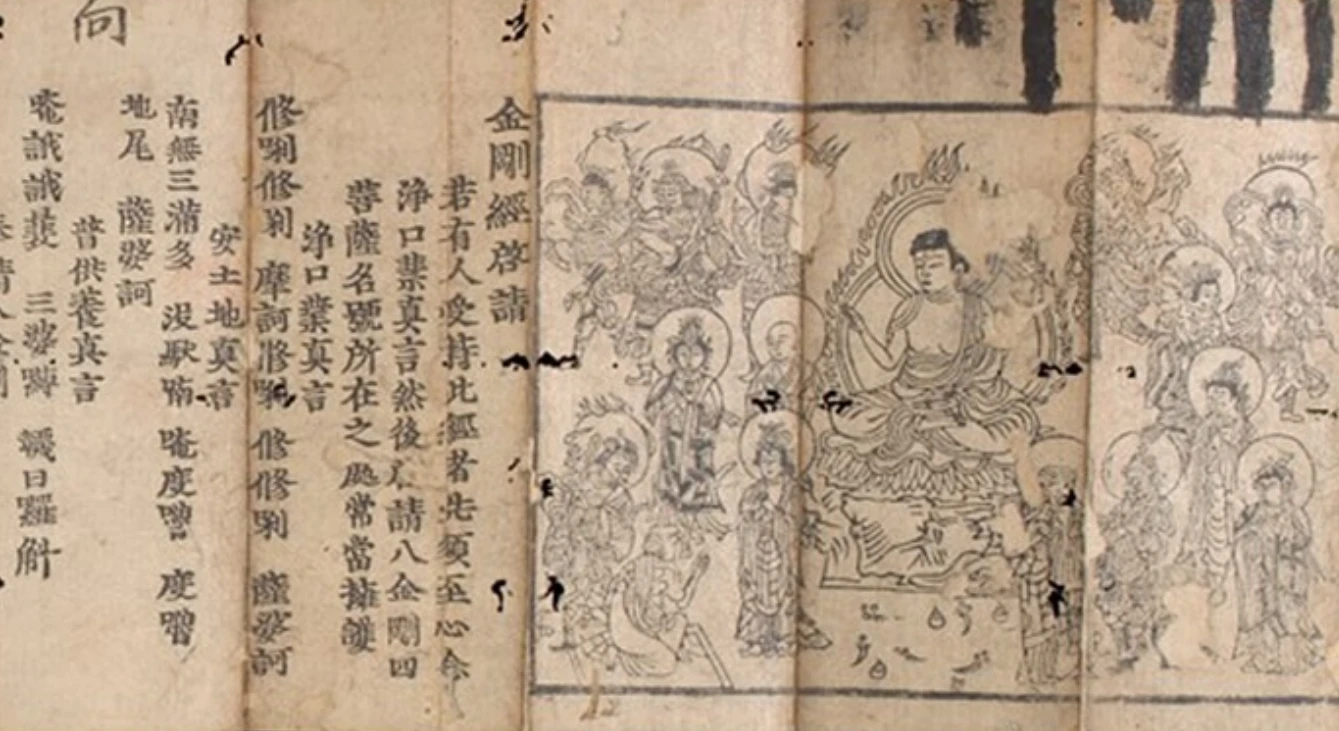 金剛經啓請
若有人受持此經者先須至心念
淨口業真言然後啓請八金剛四
菩薩名號所在之處常當擁護
淨口業真言
修唎修唎 摩訶修唎 修修唎 薩婆訶
安土地真言
南無三滿多 沒馱喃 唵度嚕 度嚕
地尾 薩婆訶
普供養真言
唵誐誐曩 三婆嚩 襪日羅斛
向